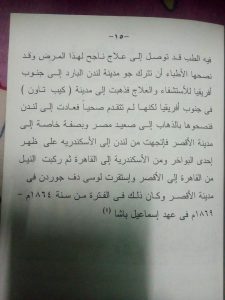 - ١٥ -
فيه الطب قد توصل إلى علاج ناجح لهذا المرض وقد
نصحها الأطباء أن تترك جو مدينة لندن البارد إلى جنوب
أفريقيا للأستشفاء والعلاج فذهبت إلى مدينة ( كيب تاون )
فى جنوب أفريقيا لكنها لم تتقدم صحياً فعادت إلى لندن
فنصحوها بالذهاب إلى صعيد مصر وبصفة خاصة إلى
مدينة الأقصر فإتجهت من لندن إلى الأسكندريه على ظهر
إحدى البواخر ومن الأسكندرية إلى القاهرة ثم ركبت النيل
من القاهرة إلى الأقصر وإستقرت لوسى دف جوردن فى
مدينة الأقصر وكان ذلك فى الفترة من سنة ١٨٦٤م -
١٨٦٩م فى عهد إسماعيل باشا (١)